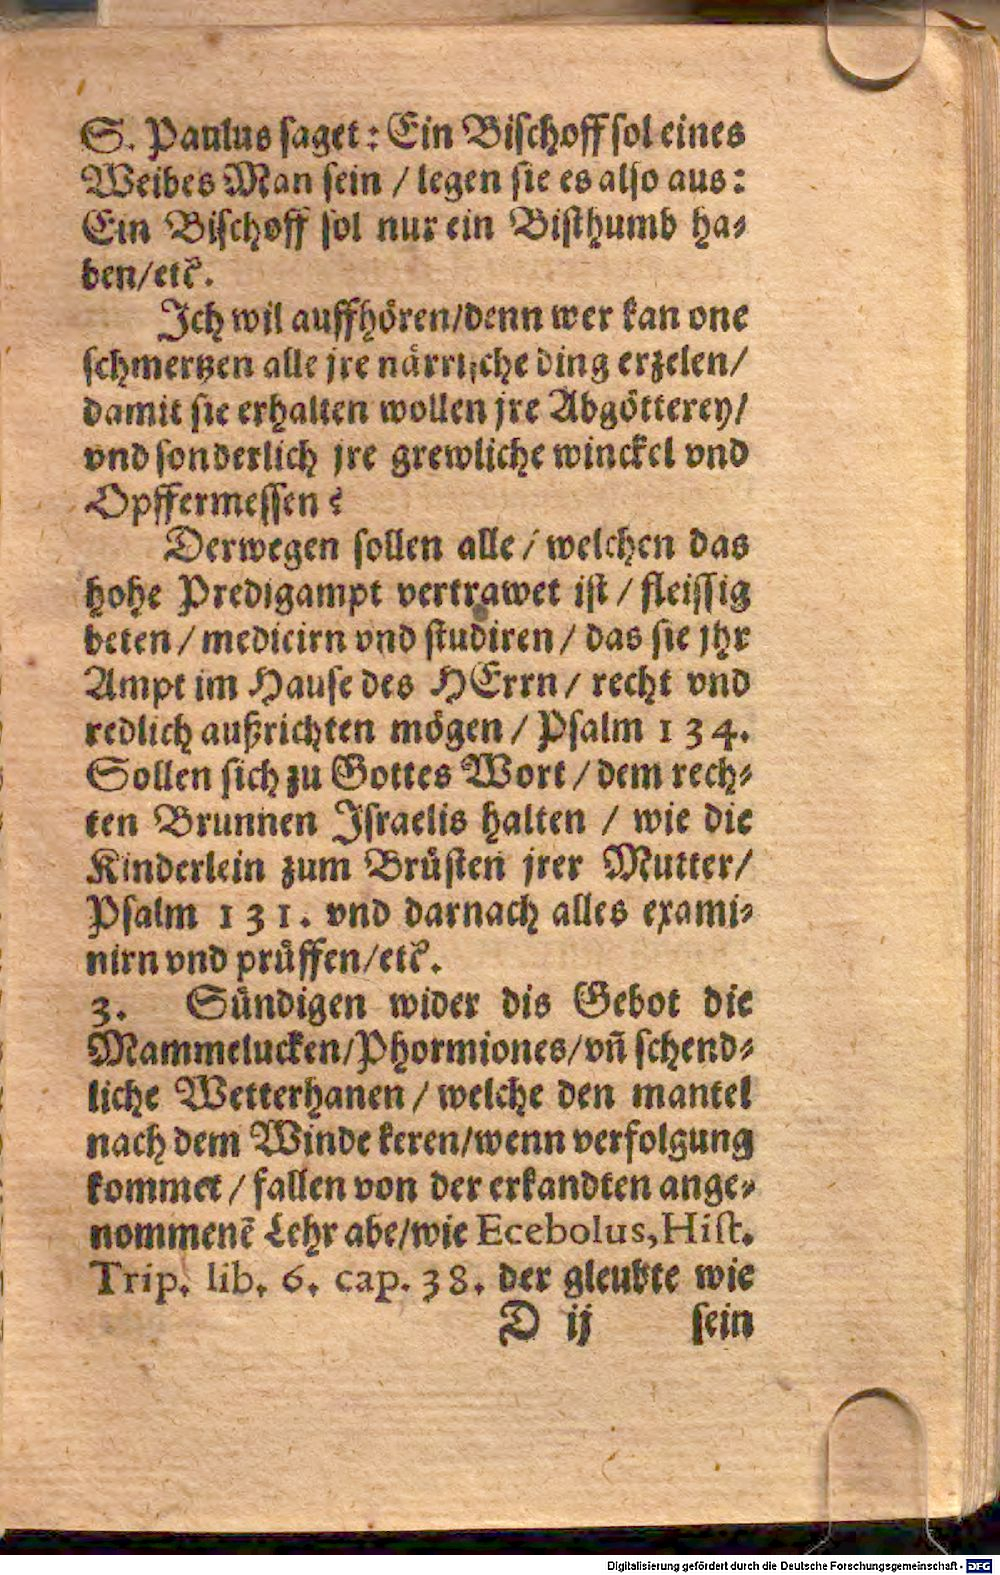 S. Paulus saget: Ein Bischoff sol eines
Weibes Man sein / legen sie es also aus:
Ein Bischoff sol nur ein Bisthumb ha-
ben/etc.
Ich wil auffhören/denn wer kan one
schmertzen alle jre närrische ding erzelen/
damit sie erhalten wollen jre Abgötterey/
vnd sonderlich jre grewliche winckel vnd
Opffermessen?
Derwegen sollen alle / welchen das
hohe Predigampt vertrawet ist / fleissig
beten / medicirn vnd studiren / das sie jhr
Ampt im Hause des HErrn / recht vnd
redlich außrichten mögen / Psalm 134.
Sollen sich zu Gottes Wort / dem rech-
ten Brunnen Israelis halten / wie die
Kinderlein zum Brüsten jrer Mutter/
Psalm 131. vnd darnach alles exami-
nirn vnd prüffen/etc.
3. Sündigen wider dis Gebot die
Mammelucken/Phormiones/vñ schend-
liche Wetterhanen / welche den mantel
nach dem Winde keren/wenn verfolgung
kommet / fallen von der erkandten ange-
nommenē Lehr abe/wie Ecebolus, Hist.
Trip. lib. 6. cap. 38. der gleubte wie
D ij sein
Digitalisierung gefördert durch die Deutsche Forschungsgemeinschaft - DFG